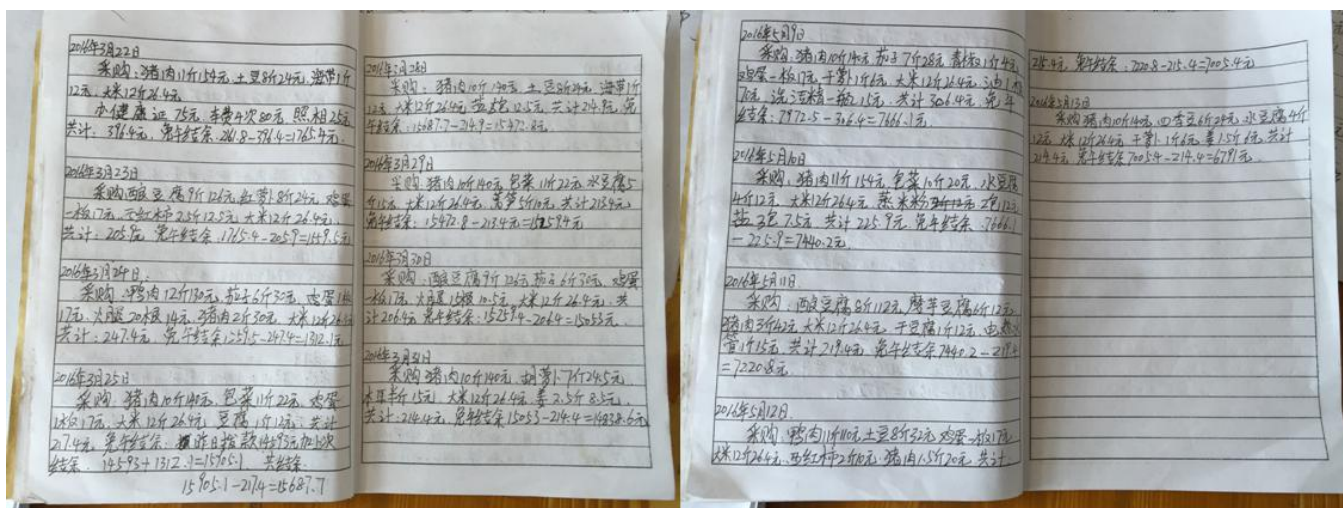 2016年3月22日
采购:猪肉11斤154元,土豆8斤24元,海带1斤
12元,大米12斤26.4元
办健康证75元,车费4次80元,照相25元
共计:396.4元,免午结余:2161.8-396.4=1765.4元
2016年3月23日
采购酸豆腐9斤126元,红萝卜8斤24元,鸡蛋
一板17元,西红柿2.5斤12.5元,大米12斤26.4元,
共计:205.9元,免午结余:1765.4-205.9=1559.5元
2016年3月24日
采购:鸭肉12斤130元,茄子6斤30元,鸡蛋1板
17元,火腿20根14元,猪肉2斤30元,大米12斤26.4元
共计:247.4元,免午结余1559.5-247.4=1312.1元
2016年3月25日
采购:猪肉10斤140元,包菜11斤22元,鸡蛋
1板17元,大米12斤26.4元,豆腐1斤12元,共计
217.4元,免午结余,昨日拨款14593元加上次
结余,14593+1312.1=15905.1,共结余
15905.1-217.4=15687.7
2016年3月28日
采购:猪肉10斤140元,土豆8斤24元,海带1斤
12元,大米12斤26.4元,盐5包12.5元,共计214.9元,免
午结余:15687.7-214.9=15472.8元
2016年3月29日
采购:猪肉10斤140元,包菜11斤22元,水豆腐5
斤15元,大米12斤26.4元,莴笋5斤10元,共计213.4元,
免午结余:15472.8-213.4元=15259.4元
2016年3月30日
采购:酸豆腐9斤126元,茄子6斤30元,鸡蛋
一板17元,火腿15根10.5元,大米12斤26.4元,共
计206.4元,免午结余:15259.4-206.4=15053元
2016年3月31日
采购:猪肉10斤140元,胡萝卜7斤24.5元,
木耳半斤15元,大米12斤26.4元,姜2.5斤8.5元,
共计:214.4元,免午结余15053-214.4=14838.6元
2016年5月9日
采购:猪肉10斤140元,茄子7斤28元,青椒1斤4元
鸡蛋一板17元,干萝卜1斤6元,大米12斤26.4元,
70元,洗洁精一瓶15元,共计306.4元,免午
结余:7972.5-306.4=7666.1元
2016年5月10日
采购:猪肉11斤154元,包菜10斤20元,水豆腐
4斤12元,大米12斤26.4元,蒸米粉2包12元,
盐3包7.5元,共计225.9元,免午结余:7666.1
-225.9=7440.2元
2016年5月11日
采购:酸豆腐8斤112元,魔芋豆腐6斤12元,
猪肉3斤42元,大米12斤26.4元,干豆腐1斤12元,电
管1个15元,共计219.4元,免午结余7440.2-219.4
=7220.8元
2016年5月12日
采购:鸭肉11斤110元,土豆8斤32元,鸡蛋一板17元
大米12斤26.4元,西红柿2斤10元,猪肉1.5斤20元,共计
215.4元,免午结余:7220.8-215.4=7005.4元
2016年5月13日
采购猪肉10斤140元,四季豆6斤24元,水豆腐4斤
12元,大米12斤26.4元,干萝卜1斤6元,姜1.5斤6元,共计
214.4元,免午结余7005.4-214.4=6791元